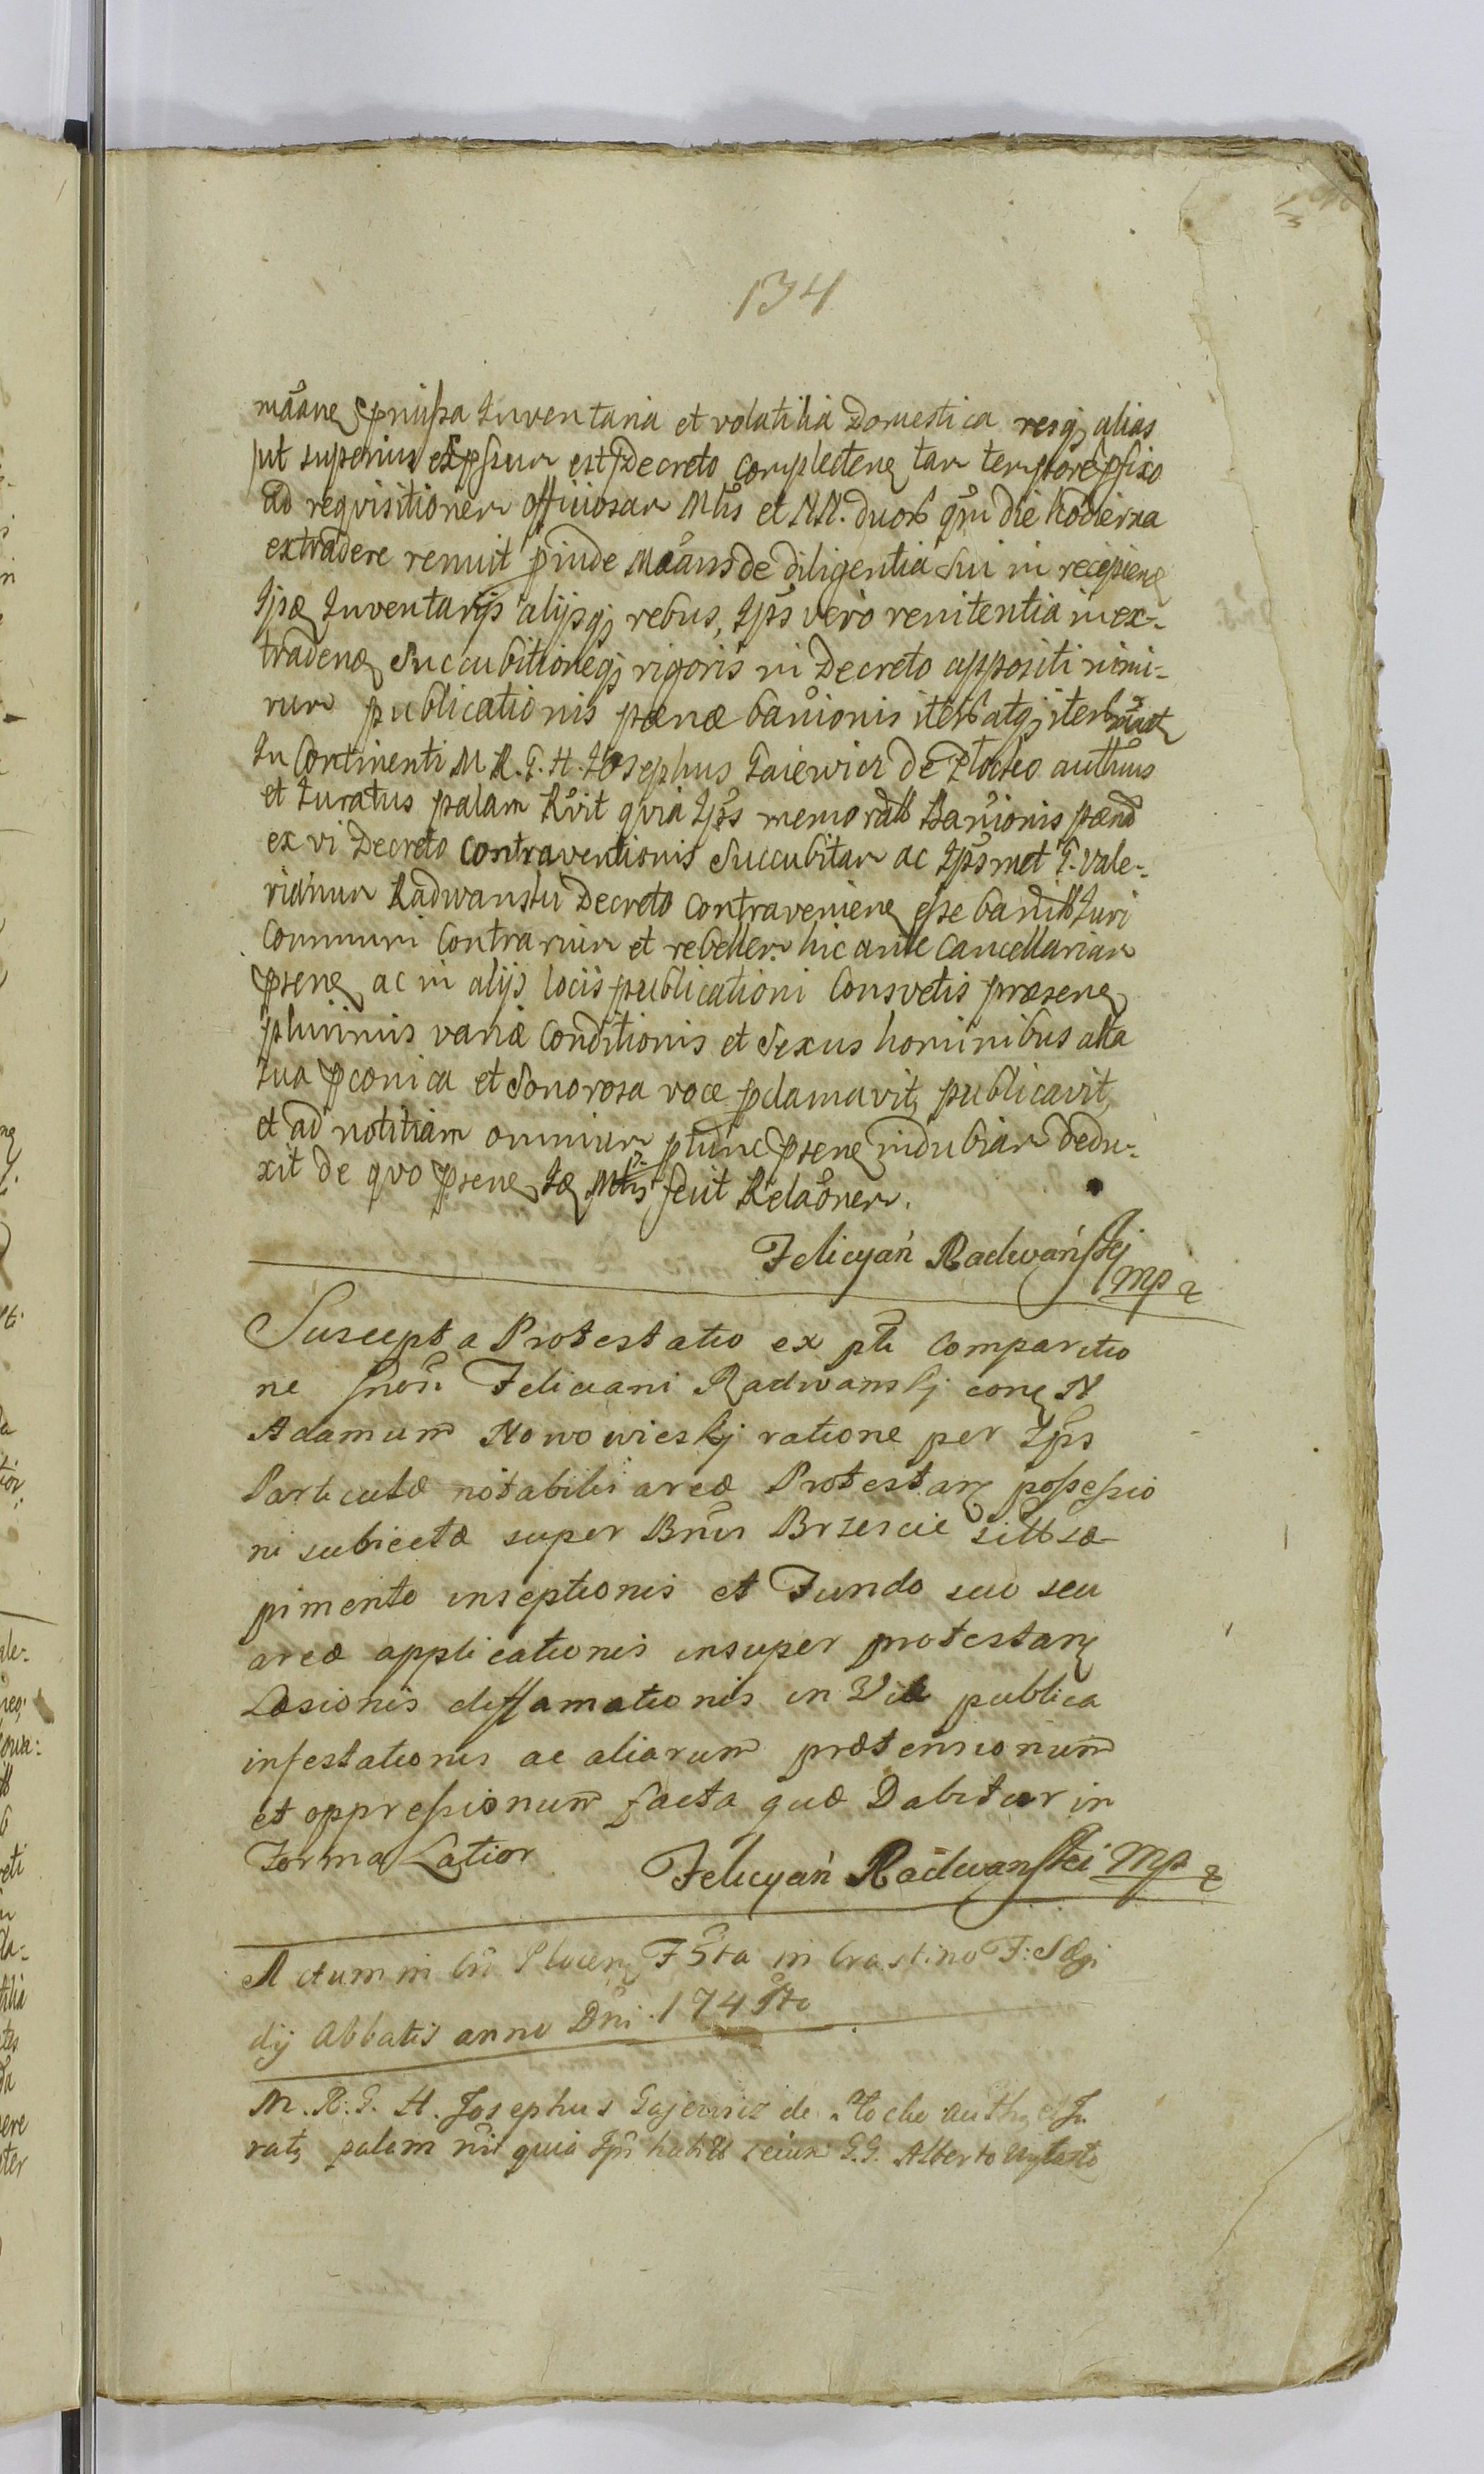 134
mãane præmissa Inventaria et volatilia Domestica resq; alias
put superius expssum est Decreto complecten tam tempore pfixo
ad requisitionem officiosam Mlis et NN. duorb gñi die hodierna
extradere renuit pinde Mãans de diligentia sui in recipien
Ipse Inventarijs alijsq; rebus, Ips vero renitentia in ex-
traden Succubitioneq; rigoris in Decreto appositi nimi-
rum publicationis pœnæ bañionis iterb atq; iterb
In Continenti M R. G. H. Josephus Gaiewicz de Płocko authus
et Juratus palam Rvit quia Ips memoratb Bañionis pœnā
ex vi Decreto contraventionis Succubitam ac Ipsmet G. Vale-
rianum Radwanski Decreto contravenien esse banitb Juri
Communi Contrarium et rebellem hic ante Cancellariam
psen ac in alijs locis publicationi Consvetis præsen
plurimis variæ Conditionis et Sexus hominibus alta
sua pconica et Sonorosa voce pclamavit, publicavit,
et ad notitiam omnium ptunc psen indubiam dedu-
xit de quo psen Mlis fecit Relãonem.
Felicyan Radwański
mp
Suscepta Protestatio ex pte Comparitio
ne Gnosi Feliciani Radwanskj con N
Adamum Nowowieskj ratione per Ips
Particulæ notabilis areæ Protestan possessio
ni subiectæ super Bnis Brzescie sitb sæ
pimento inseptionis et Fundo suo seu
areæ applicationis insuper protestan
Læsionis diffamationis in Via publica
infestationis ac aliarum prætensionum
et oppressionum facta quæ Dabitur in
Forma Latior
Felicyan Radwanski Mp
Actum in Cũ Plocen F 5ta in Crastino F: S Ægi
dij Abbatis anno Dñi 174
M. R. G. H. Josephus Gajewicz de Płocko auth et Ju
rat palam rñit quia Ips G.G. Alberto